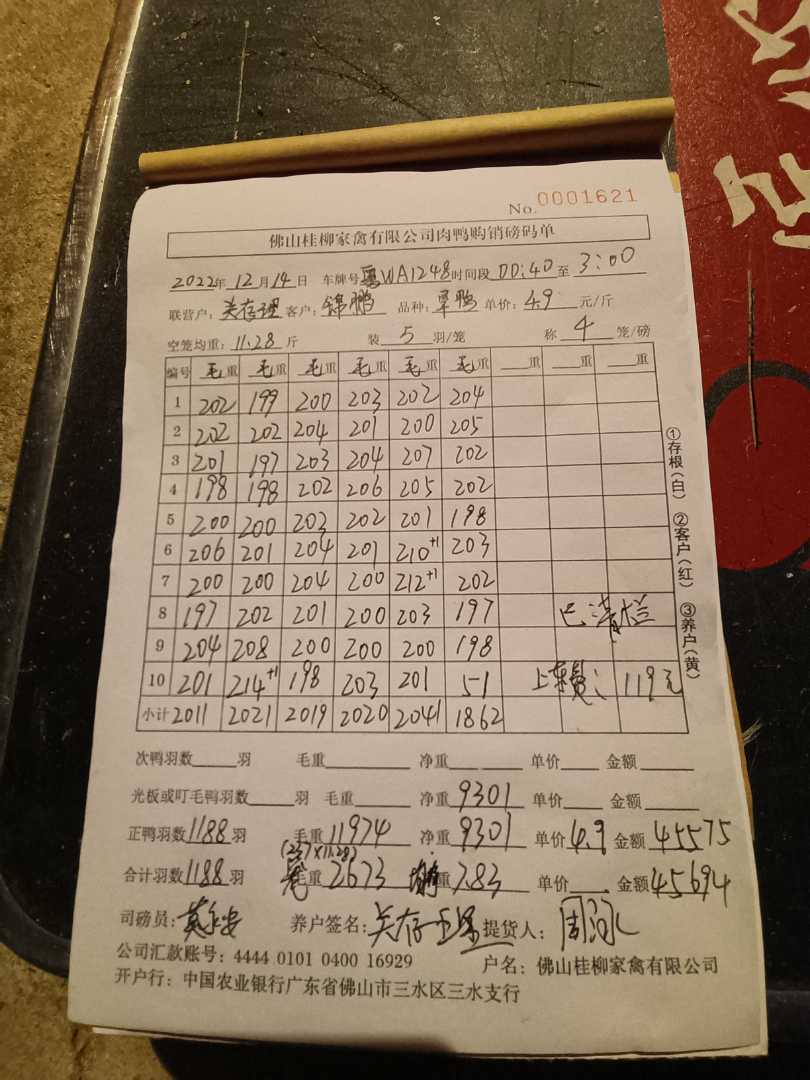 No. 0001621
佛山桂柳家禽有限公司肉鸭购销磅码单
2022年 12月 14日 车牌号 粤WA1248 时间段 00:40 至 3:00
联营户: 关存理 客户: 锦鹏 品种: 单价: 4.9 元/斤
空笼均重: 11.28 斤 装 5 羽/笼 称 4 笼/磅
编号 毛重 毛重 毛重 毛重 毛重 毛重 重 重 重
1 202 199 200 203 202 204
2 202 202 204 201 200 205
3 201 197 203 204 207 202
4 198 198 202 206 205 202
5 200 200 203 202 201 198
6 206 201 204 201 210+1 203
7 200 200 204 200 212+1 202
8 197 202 201 200 203 197 巴清栏
9 204 208 200 200 200 198
10 201 214+1 198 203 201 51 上车费: 119元
小计 2011 2021 2019 2020 2041 1862
①存根(白) ②客户(红) ③养户(黄)
次鸭羽数 羽 毛重 净重 单价 金额
光板或叮毛鸭羽数 羽 毛重 净重 9301 单价 金额
正鸭羽数 1188 羽 毛重 11974 净重 9301 单价 4.9 金额 45575
(237×11.28)
合计羽数 1188 羽 毛重 2673 重 7.83 单价 金额 45694
司磅员: 养户签名: 关存 提货人: 周
公司汇款账号: 4444 0101 0400 16929 户名: 佛山桂柳家禽有限公司
开户行: 中国农业银行广东省佛山市三水区三水支行